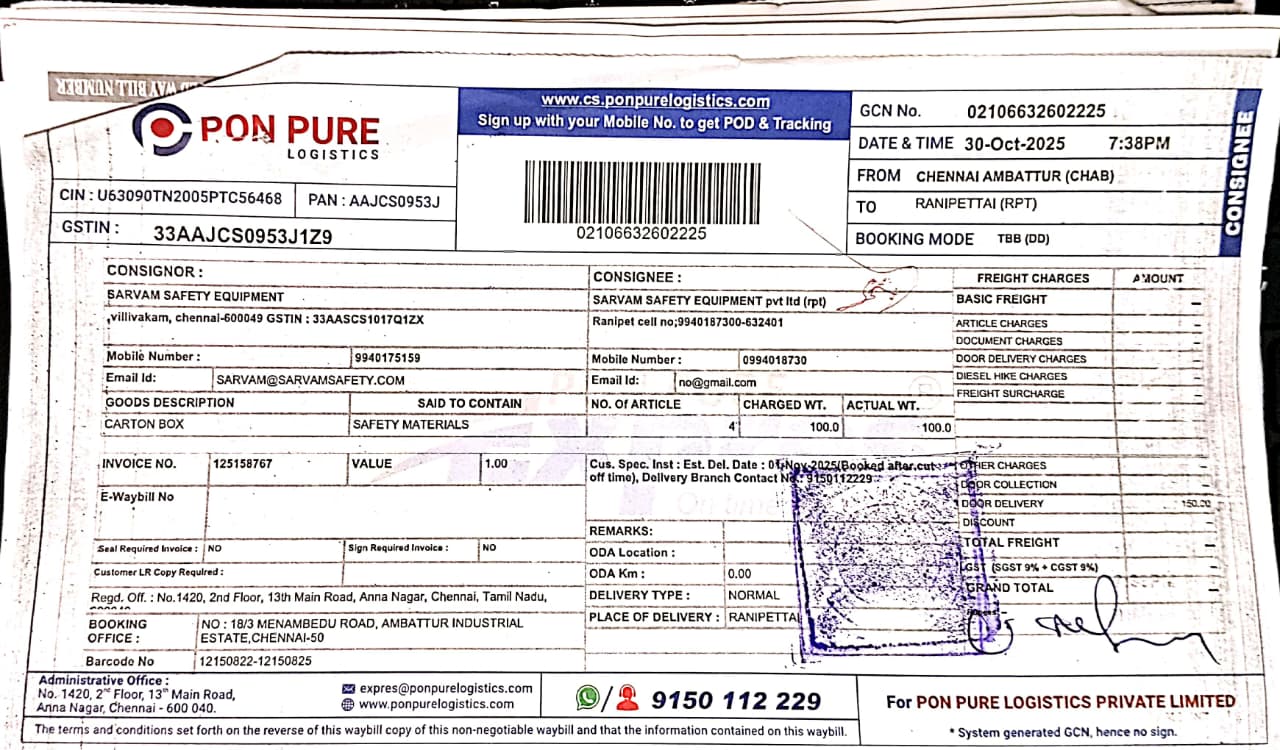 WAY BILL NUMBER
PON PURE
LOGISTICS
www.cs.ponpurelogistics.com
Sign up with your Mobile No. to get POD & Tracking
02106632602225
GCN No. 02106632602225
DATE & TIME 30-Oct-2025 7:38PM
FROM CHENNAI AMBATTUR (CHAB)
TO RANIPETTAI (RPT)
BOOKING MODE TBB (DD)
CONSIGNEE
CIN : U63090TN2005PTC56468 PAN : AAJCS0953J
GSTIN : 33AAJCS0953J1Z9
CONSIGNOR :
SARVAM SAFETY EQUIPMENT
,villivakam, chennai-600049 GSTIN : 33AASCS1017Q1ZX
Mobile Number : 9940175159
Email Id: SARVAM@SARVAMSAFETY.COM
CONSIGNEE :
SARVAM SAFETY EQUIPMENT pvt ltd (rpt)
Ranipet cell no;9940187300-632401
Mobile Number : 0994018730
Email Id: no@gmail.com
GOODS DESCRIPTION SAID TO CONTAIN NO. Of ARTICLE CHARGED WT. ACTUAL WT.
CARTON BOX SAFETY MATERIALS 4 100.0 100.0
INVOICE NO. 125158767 VALUE 1.00
E-Waybill No
Seal Required Invoice : NO Sign Required Invoice : NO
Customer LR Copy Required :
Regd. Off. : No.1420, 2nd Floor, 13th Main Road, Anna Nagar, Chennai, Tamil Nadu,
BOOKING OFFICE : NO : 18/3 MENAMBEDU ROAD, AMBATTUR INDUSTRIAL
ESTATE,CHENNAI-50
Barcode No 12150822-12150825
Cus. Spec. Inst : Est. Del. Date : 01-Nov-2025(Booked after cut
off time), Delivery Branch Contact No.: 9150112229
On time
REMARKS:
ODA Location :
ODA Km : 0.00
DELIVERY TYPE : NORMAL
PLACE OF DELIVERY : RANIPETTAI
FREIGHT CHARGES AMOUNT
BASIC FREIGHT -
ARTICLE CHARGES -
DOCUMENT CHARGES
DOOR DELIVERY CHARGES -
DIESEL HIKE CHARGES -
FREIGHT SURCHARGE -
OTHER CHARGES -
DOOR COLLECTION -
DOOR DELIVERY 150.00
DISCOUNT -
TOTAL FREIGHT -
GST (SGST 9% + CGST 9%) -
GRAND TOTAL -
Administrative Office :
No. 1420, 2nd Floor, 13th Main Road,
Anna Nagar, Chennai - 600 040.
expres@ponpurelogistics.com
www.ponpurelogistics.com
9150 112 229
For PON PURE LOGISTICS PRIVATE LIMITED
* System generated GCN, hence no sign.
The terms and conditions set forth on the reverse of this waybill copy of this non-negotiable waybill and that the information contained on this waybill.